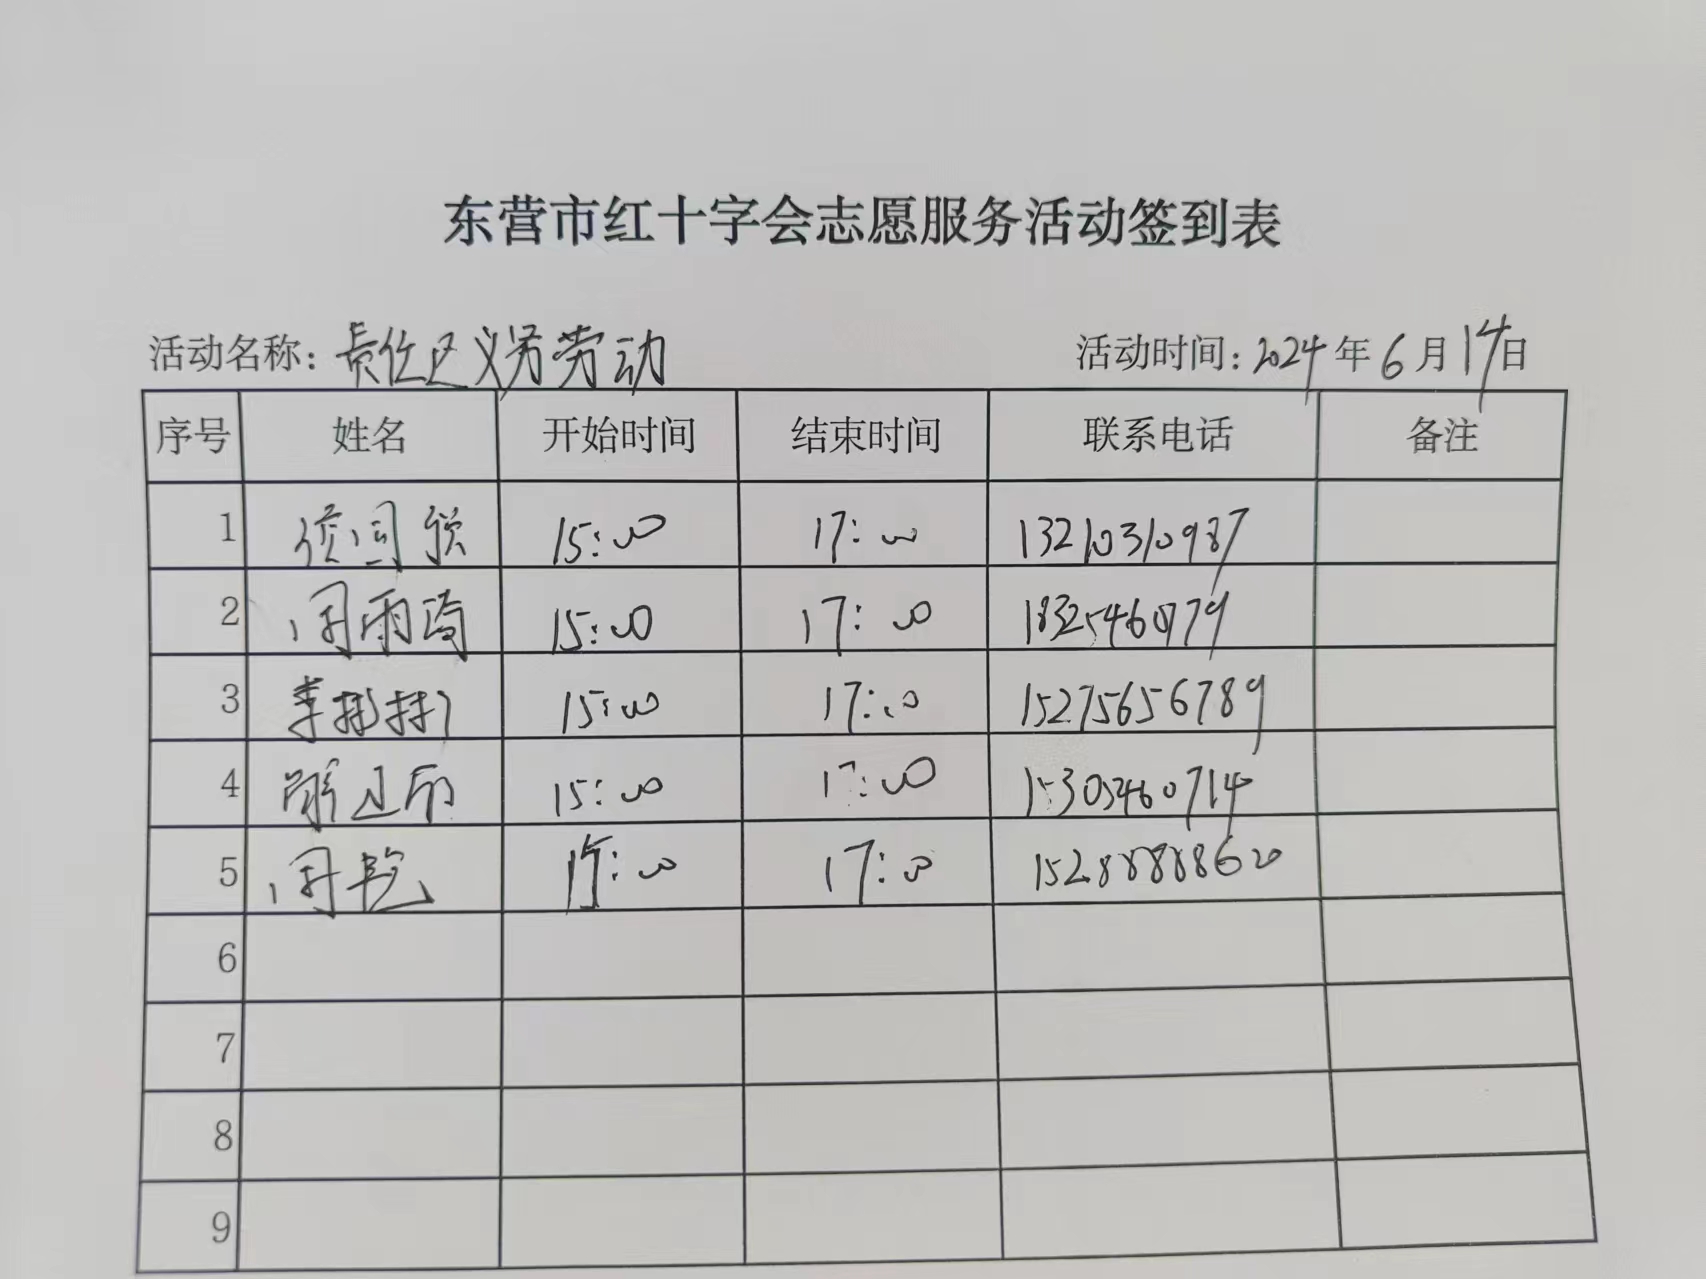 东营市红十字会志愿服务活动签到表
活动名称：责任区义务劳动 活动时间：2024年6月14日
序号 姓名 开始时间 结束时间 联系电话 备注
1 15:00 17:00 13210310987
2 周雨 15:00 17:00 18325460779
3 李彬彬 15:00 17:00 15275656789
4 15:00 17:00 15305460714
5 周 15:00 17:00 15288888620
6
7
8
9